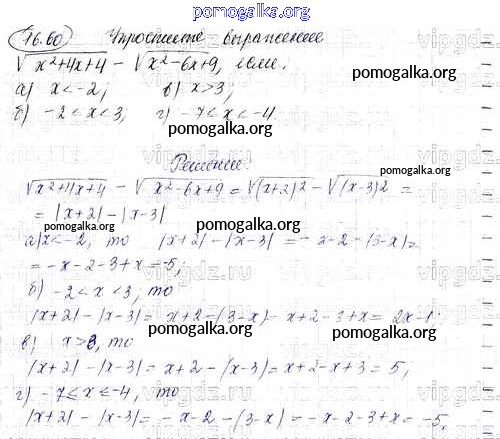 pomogalka.org
16.60) Упростите выражение
√x²+4x+4 - √x²-6x+9, если:
а) x<-2; в) x>3;
б) -2<x<3; г) -7≤x≤-4.
pomogalka.org
Решение:
√x²+4x+4 - √x²-6x+9 = √(x+2)² - √(x-3)² =
= |x+2| - |x-3|
pomogalka.org
а) x<-2, то |x+2| - |x-3| = -x-2-(3-x)=
= -x-2-3+x=-5;
pomogalka.org
б) -2<x<3; то
|x+2| - |x-3| = x+2-(3-x)= x+2-3+x= 2x-1;
pomogalka.org
в) x>3, то
|x+2| - |x-3| = x+2 - (x-3)= x+2-x+3 = 5;
pomogalka.org
г) -7≤x≤-4, то
|x+2| - |x-3| = -x-2-(3-x) = -x-2-3+x = -5.
pomogalka.org